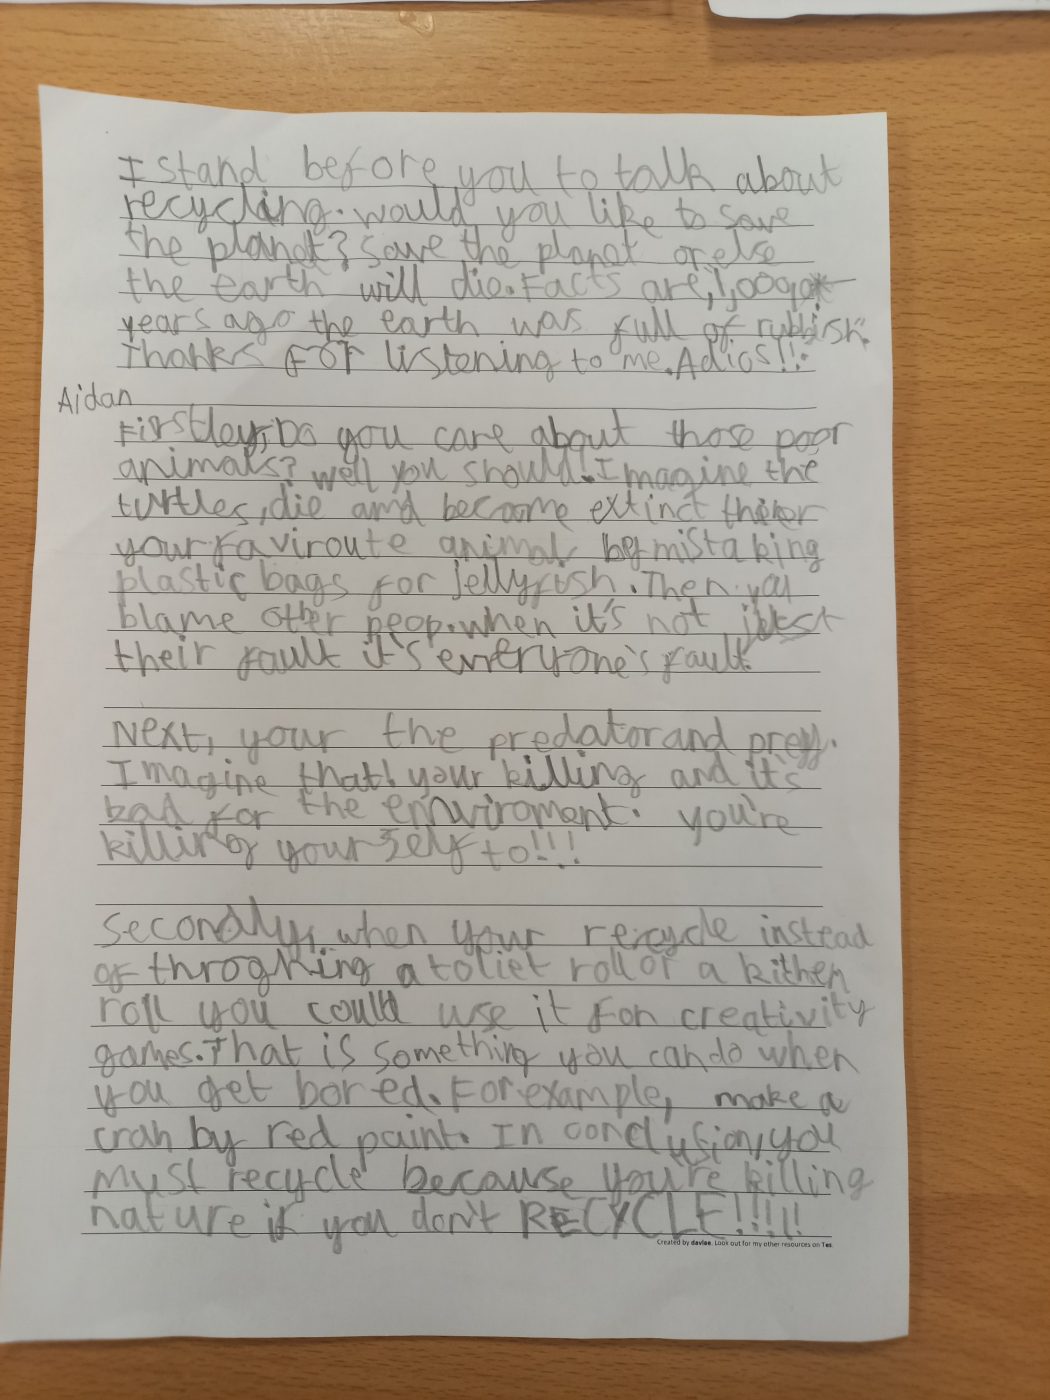 I stand before you to talk about
recycling. would you like to save
the planet? save the planet or else
the earth will die. Facts are,
years ago the earth was full of rubbish.
Thanks For listening to me. Adios!!.
Aidan
Firstley, Do you care about those poor
animals? well you should! Imagine the
turtles, die and become extinct
your faviroute animals by mistaking
plastic bags for jellyfish. Then you
blame other peop. when it's not just
their fault it's everyone's fault
Next, your the predator and prey.
Imagine that! your killing and it's
bad for the enviroment. you're
killing yourself to!!!
Secondly, when your recycle instead
of throghing a toliet roll or a kithen
roll you could use it for creativity
games. That is something you can do when
you get bored. For example, make a
crab by red paint. In conclusion, you
must recycle because you're killing
nature if you don't RECYCLE!!!!!
Created by davlee. Look out for my other resources on Tes